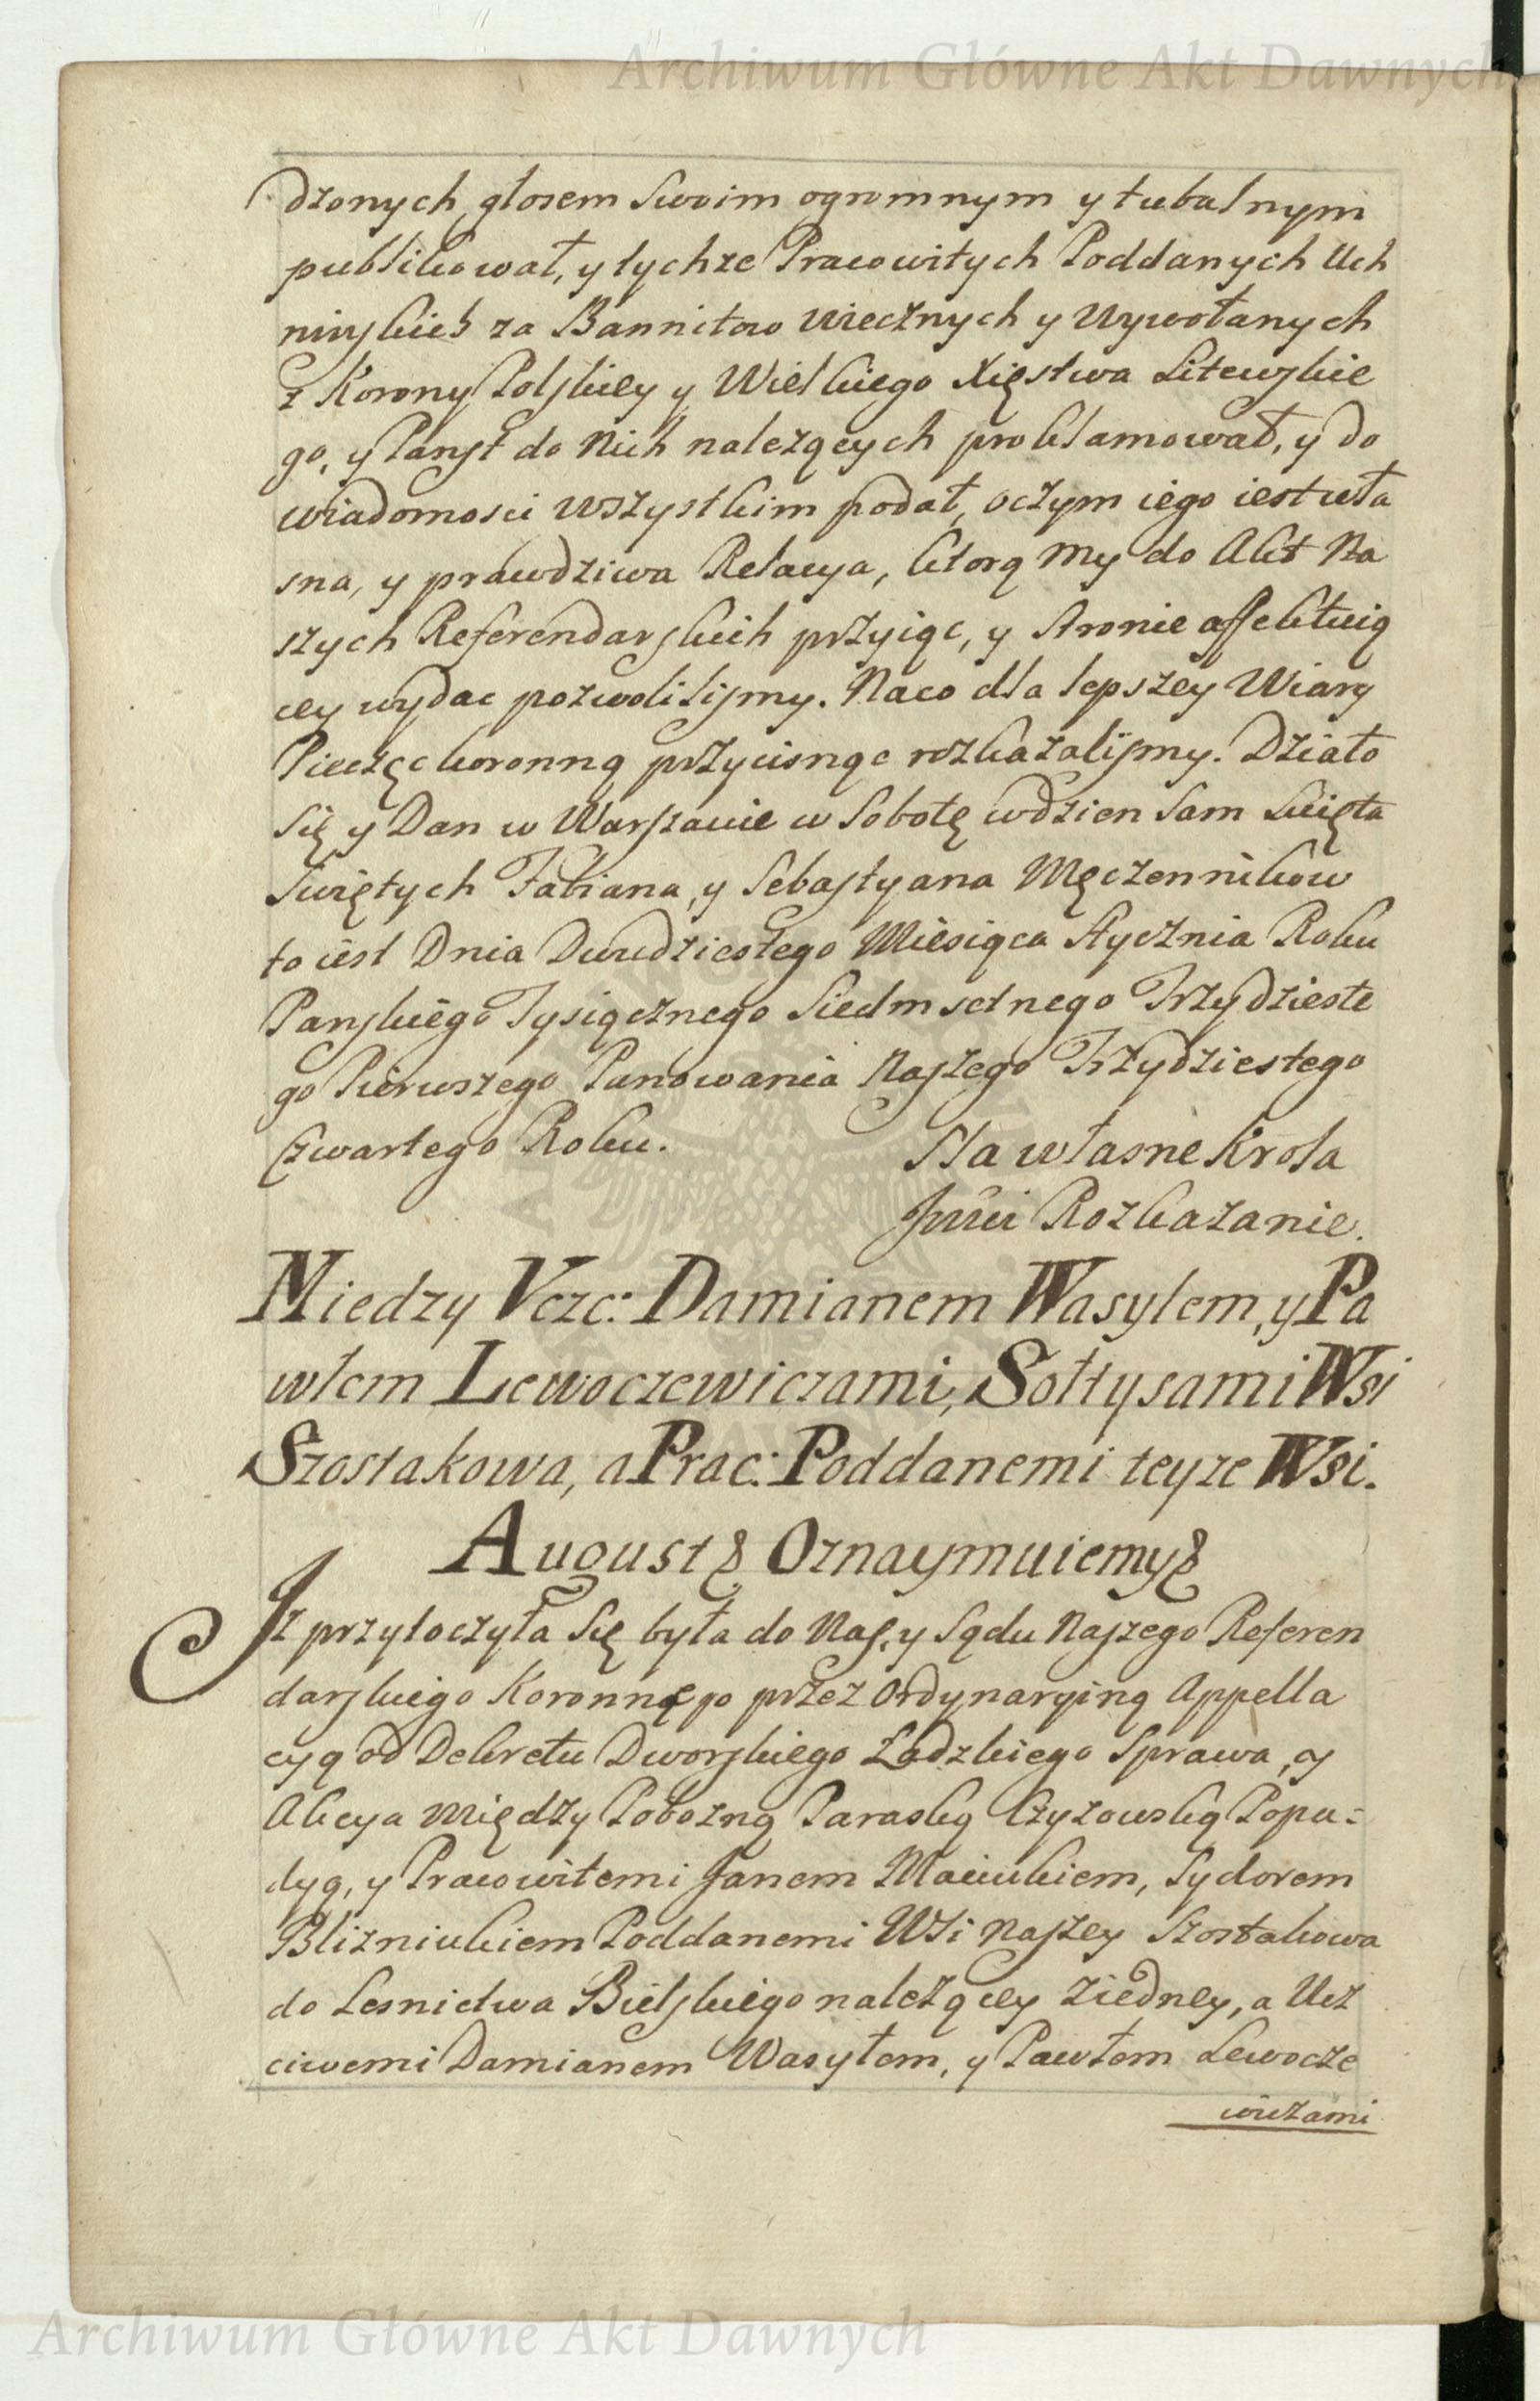 Archiwum Główne Akt Dawnych
dzonych głosem Swoim ogromnym y tubalnym
publikował, y tychze Pracowitych Poddanych Uch
ninskich za Bannitow wiecznych y Wywołanych
z Korony Polskiey y Wielkiego Xięstwa Litewskie
go, y Panst do Nich nalezących proklamował, y do
wiadomosci wszystkim podał, oczym iego iest wła
sna, y prawdziwa Relacya, ktorą My do Akt Na
szych Referendarskich przyiąc, y Stronie affektuią
cey wydac pozwolilismy. Naco dla lepszey Wiary
Pieczęc koronną przycisnąc rozkazalismy. Działo
Się y Dan w Warszawie w Sobotę wdzien Sam Swięta
Swiętych Fabiana, y Sebastyana Męczennikow
to iest Dnia Dwudziestego Miesiąca Stycznia Roku
Panskiego Tysiącznego Siedmsetnego Trzydzieste
go Pierwszego Panowania Naszego Trzydziestego
Czwartego Roku. Na własne Krola
Jmci Rozkazanie.
Miedzy Vczc: Damianem Wasylem, y Pa
włem Lewoczewiczami, Sołtysami Wsi
Szostakowa, a Prac: Poddanemi teyze Wsi.
August & Oznaymuiemy &
Iz przytoczyła Się była do Nas, y Sądu Naszego Referen
darskiego Koronnego przez Ordynaryiną Appella
cyą od Dekretu Dworskiego Ładzkiego Sprawa, y
Akcya między Pobozną Paraską Czyzowską Popa=
dyą, y Pracowitemi Janem Maciukiem, Sydorem
Blizniukiem Poddanemi Wsi Naszey Szostakowa
do Lesnictwa Bielskiego nalezącey ziedney, a Ucz
ciwemi Damianem Wasyłem, y Pawłem Lewocze
wiczami
Archiwum Główne Akt Dawnych